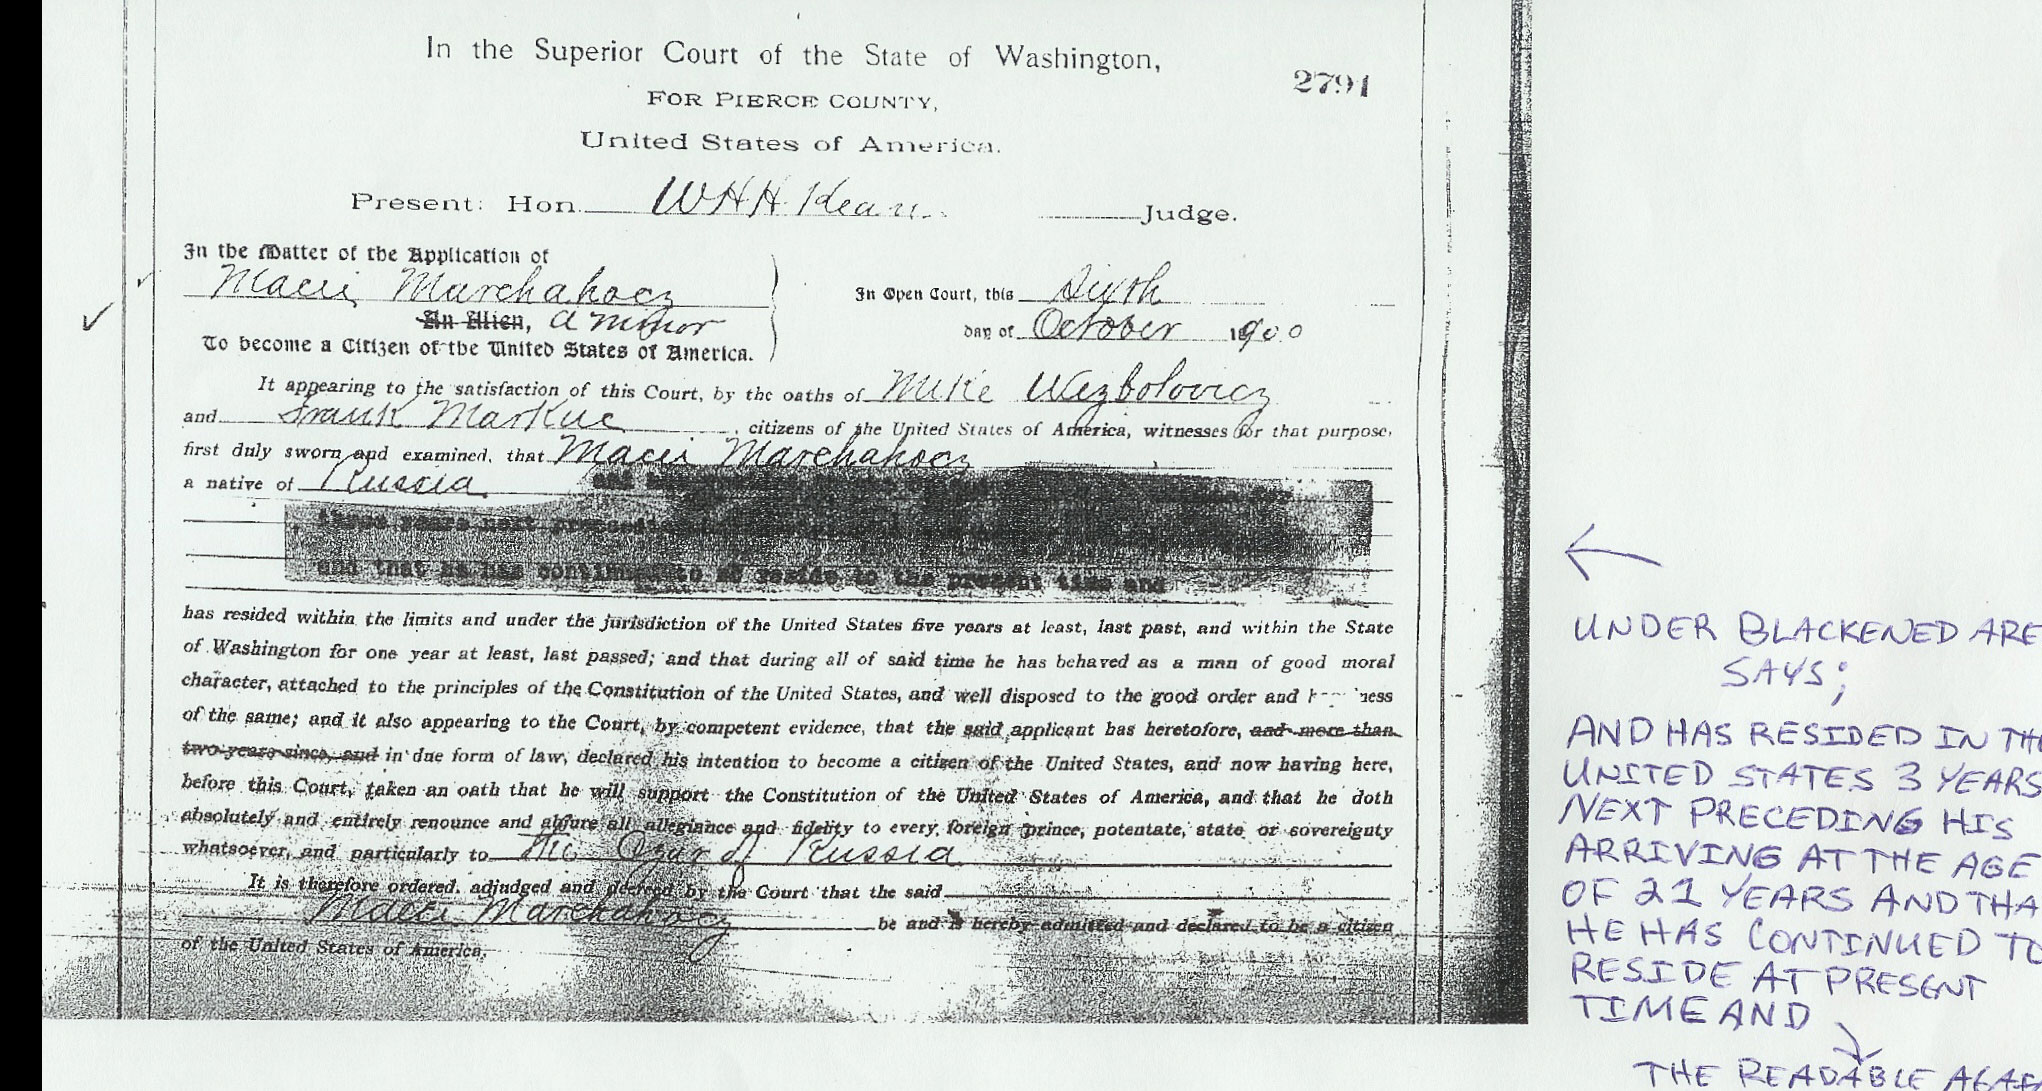 In the Superior Court of the State of Washington,
2791
FOR PIERCE COUNTY,
United States of America.
Present: Hon. W H H Kean Judge.
In the Matter of the Application of
Macii Marchahocz
An Alien, a minor
To become a Citizen of the United States of America.
In Open Court, this Sixth
day of October 1900
It appearing to the satisfaction of this Court, by the oaths of Mike Wezbolovicz
and Frank Markue, citizens of the United States of America, witnesses for that purpose,
first duly sworn and examined, that Macii Marchahocz
a native of Russia and
three years next preceding
and that he has continued to so reside to the present time and
has resided within the limits and under the jurisdiction of the United States five years at least, last past, and within the State
of Washington for one year at least, last passed; and that during all of said time he has behaved as a man of good moral
character, attached to the principles of the Constitution of the United States, and well disposed to the good order and
of the same; and it also appearing to the Court, by competent evidence, that the said applicant has heretofore, and more than
two years since, and in due form of law, declared his intention to become a citizen of the United States, and now having here,
before this Court, taken an oath that he will support the Constitution of the United States of America, and that he doth
absolutely and entirely renounce and abjure all allegiance and fidelity to every foreign prince, potentate, state or sovereignty
whatsoever, and particularly to The Czar of Russia
It is therefore ordered, adjudged and decreed by the Court that the said
Macii Marchahocz be and is hereby admitted and declared to be a citizen
of the United States of America.
UNDER BLACKENED ARE
SAYS;
AND HAS RESIDED IN THE
UNITED STATES 3 YEARS
NEXT PRECEDING HIS
ARRIVING AT THE AGE
OF 21 YEARS AND THA
HE HAS CONTINUED TO
RESIDE AT PRESENT
TIME AND
THE READABLE AGAE